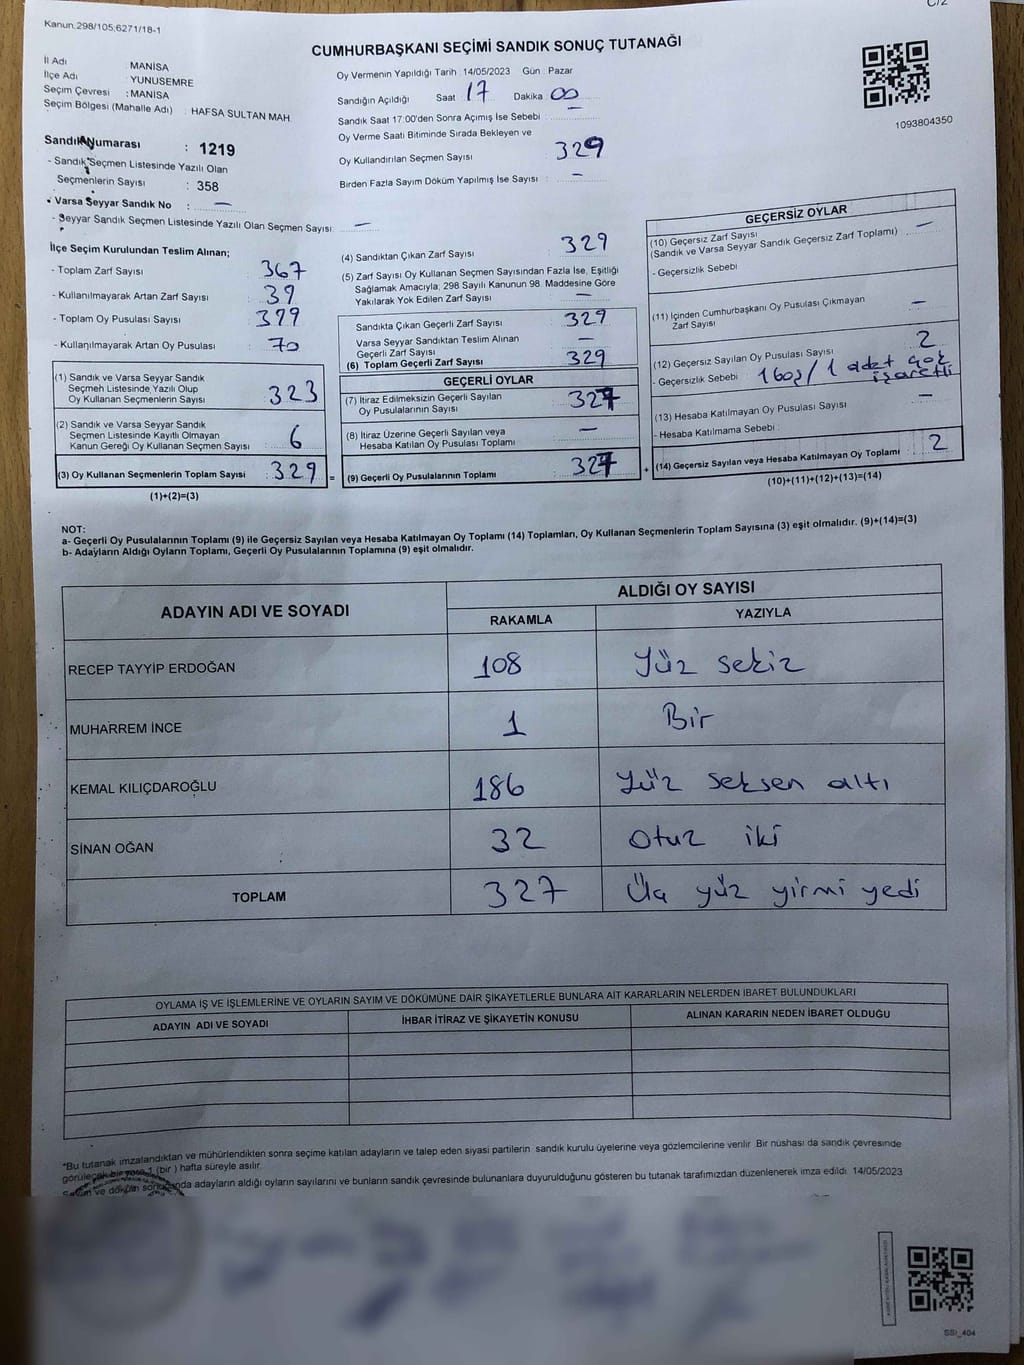 C/2
Kanun:298/105;6271/18-1
CUMHURBAŞKANI SEÇİMİ SANDIK SONUÇ TUTANAĞI
İl Adı MANİSA
İlçe Adı : YUNUSEMRE
Seçim Çevresi : MANİSA
Seçim Bölgesi (Mahalle Adı) : HAFSA SULTAN MAH.
Sandık Numarası : 1219
- Sandık Seçmen Listesinde Yazılı Olan
Seçmenlerin Sayısı : 358
Varsa Seyyar Sandık No : —
- Seyyar Sandık Seçmen Listesinde Yazılı Olan Seçmen Sayısı: —
Oy Vermenin Yapıldığı Tarih : 14/05/2023 Gün : Pazar
Sandığın Açıldığı Saat 17 Dakika 00
Sandık Saat 17:00'den Sonra Açımış İse Sebebi : —
Oy Verme Saati Bitiminde Sırada Bekleyen ve
Oy Kullandırılan Seçmen Sayısı 329
Birden Fazla Sayım Döküm Yapılmış İse Sayısı : —
1093804350
İlçe Seçim Kurulundan Teslim Alınan;
- Toplam Zarf Sayısı 367
- Kullanılmayarak Artan Zarf Sayısı 39
- Toplam Oy Pusulası Sayısı 399
- Kullanılmayarak Artan Oy Pusulası : 70
(1) Sandık ve Varsa Seyyar Sandık
Seçmen Listesinde Yazılı Olup
Oy Kullanan Seçmenlerin Sayısı : 323
(2) Sandık ve Varsa Seyyar Sandık
Seçmen Listesinde Kayıtlı Olmayan
Kanun Gereği Oy Kullanan Seçmen Sayısı : 6
(3) Oy Kullanan Seçmenlerin Toplam Sayısı : 329 =
(1)+(2)=(3)
(4) Sandıktan Çıkan Zarf Sayısı 329
(5) Zarf Sayısı Oy Kullanan Seçmen Sayısından Fazla İse, Eşitliği
Sağlamak Amacıyla; 298 Sayılı Kanunun 98. Maddesine Göre
Yakılarak Yok Edilen Zarf Sayısı : —
Sandıkta Çıkan Geçerli Zarf Sayısı : 329
Varsa Seyyar Sandıktan Teslim Alınan
Geçerli Zarf Sayısı : —
(6) Toplam Geçerli Zarf Sayısı 329
GEÇERLİ OYLAR
(7) İtiraz Edilmeksizin Geçerli Sayılan
Oy Pusulalarının Sayısı : 327
(8) İtiraz Üzerine Geçerli Sayılan veya
Hesaba Katılan Oy Pusulası Toplamı : —
(9) Geçerli Oy Pusulalarının Toplamı : 327 +
GEÇERSİZ OYLAR
(10) Geçersiz Zarf Sayısı
(Sandık ve Varsa Seyyar Sandık Geçersiz Zarf Toplamı) : —
- Geçersizlik Sebebi
(11) İçinden Cumhurbaşkanı Oy Pusulası Çıkmayan
Zarf Sayısı : —
(12) Geçersiz Sayılan Oy Pusulası Sayısı 2
- Geçersizlik Sebebi 1 boş / 1 adet çok
işaretli
(13) Hesaba Katılmayan Oy Pusulası Sayısı : —
- Hesaba Katılmama Sebebi :
(14) Geçersiz Sayılan veya Hesaba Katılmayan Oy Toplamı : 2
(10)+(11)+(12)+(13)=(14)
NOT:
a- Geçerli Oy Pusulalarının Toplamı (9) ile Geçersiz Sayılan veya Hesaba Katılmayan Oy Toplamı (14) Toplamları, Oy Kullanan Seçmenlerin Toplam Sayısına (3) eşit olmalıdır. (9)+(14)=(3)
b- Adayların Aldığı Oyların Toplamı, Geçerli Oy Pusulalarının Toplamına (9) eşit olmalıdır.
ADAYIN ADI VE SOYADI
ALDIĞI OY SAYISI
RAKAMLA YAZIYLA
RECEP TAYYİP ERDOĞAN 108 Yüz sekiz
MUHARREM İNCE 1 Bir
KEMAL KILIÇDAROĞLU 186 Yüz seksen altı
SİNAN OĞAN 32 Otuz iki
TOPLAM 327 Üç yüz yirmi yedi
OYLAMA İŞ VE İŞLEMLERİNE VE OYLARIN SAYIM VE DÖKÜMÜNE DAİR ŞİKAYETLERLE BUNLARA AİT KARARLARIN NELERDEN İBARET BULUNDUKLARI
ADAYIN ADI VE SOYADI İHBAR İTİRAZ VE ŞİKAYETİN KONUSU ALINAN KARARIN NEDEN İBARET OLDUĞU
*Bu tutanak imzalandıktan ve mühürlendikten sonra seçime katılan adayların ve talep eden siyasi partilerin sandık kurulu üyelerine veya gözlemcilerine verilir. Bir nüshası da sandık çevresinde
görülecek bir yere 1 (bir ) hafta süreyle asılır.
Sayım ve döküm sonucunda adayların aldığı oyların sayılarını ve bunların sandık çevresinde bulunanlara duyurulduğunu gösteren bu tutanak tarafımızdan düzenlenerek imza edildi. 14/05/2023
SSI_404